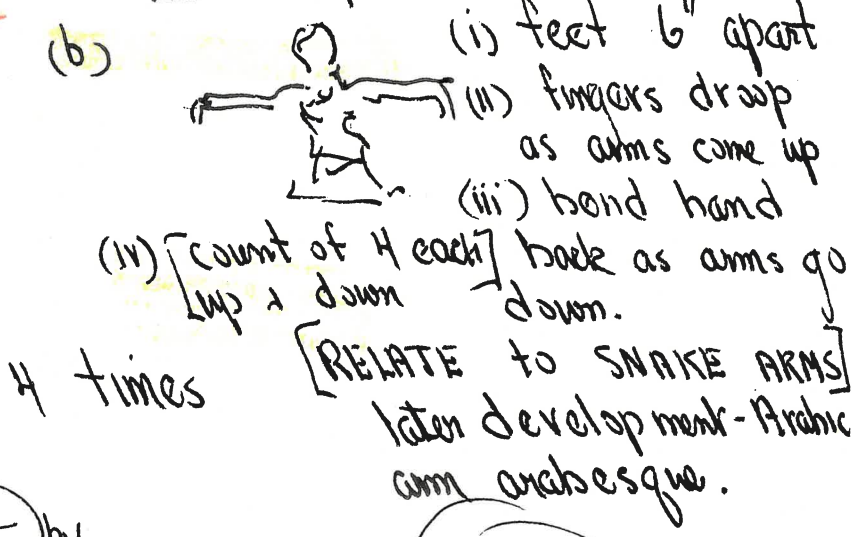 (b)
(i) feet 6" apart
(ii) fingers droop
as arms come up
(iii) bend hand
back as arms go
down.
(iv) [count of 4 each]
up & down
4 times
[RELATE to SNAKE ARMS]
later development - Arabic
arm arabesque.
by